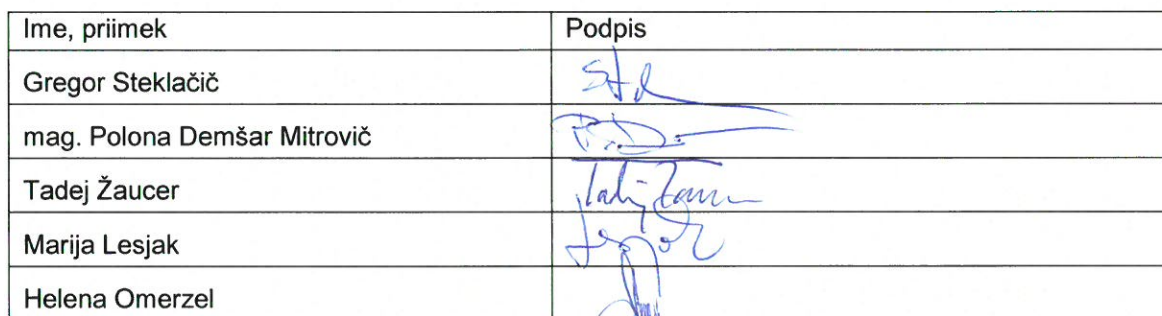 Ime, priimek Podpis
Gregor Steklačič
mag. Polona Demšar Mitrovič
Tadej Žaucer
Marija Lesjak
Helena Omerzel